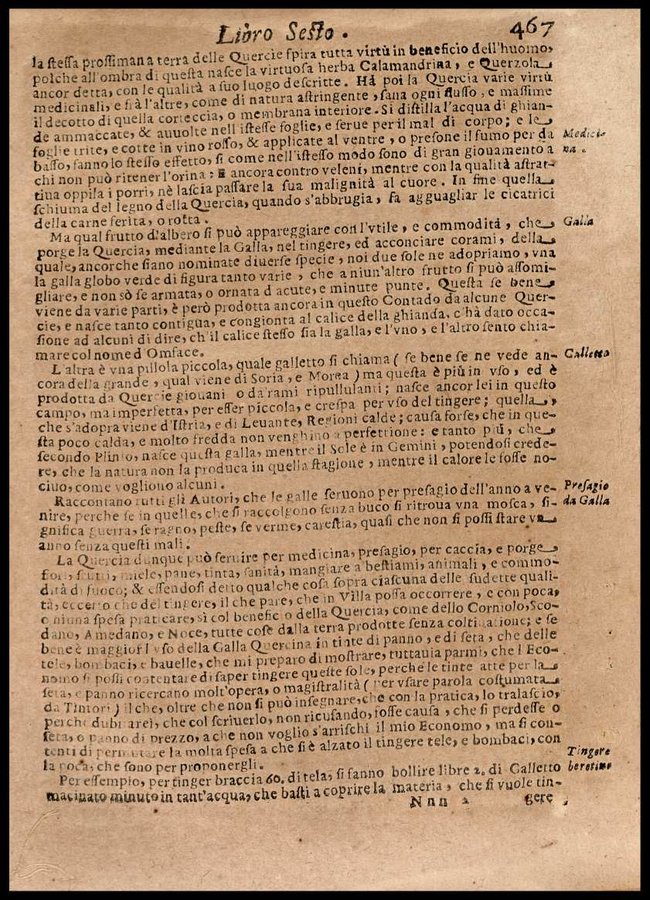 Libro Sesto. 467
la stessa prossiman a terra delle Quercie spira tutta virtù in beneficio dell'huomo,
poiche all'ombra di questa nasce la virtuosa herba Calamandrina, e Querzola
ancor detta, con le qualità a suo luogo descritte. Hà poi la Quercia varie virtù
medicinali, e fra l'altre, come di natura astringente, sana ogni flusso, e massime
il decotto di quella corteccia, o membrana interiore. Si distilla l'acqua di ghian-
de ammaccate, & auuolte nell'istesse foglie, e serue per il mal di corpo; e le
foglie trite, e cotte in vino rosso, & applicate al ventre, o presone il fumo per da
Medici-
na.
basso, fanno lo stesso effetto, si come nell'istesso modo sono di gran giouamento a
chi non può ritener l'orina: è ancora contro veleni, mentre con la qualità astrat-
tiua oppila i porri, nè lascia passare la sua malignità al cuore. In fine quella
schiuma del legno della Quercia, quando s'abbrugia, fa agguagliar le cicatrici
della carne ferita, o rotta.
Ma qual frutto d'albero si può appareggiare con l'vtile, e commodità, che
Galla
porge la Quercia, mediante la Galla, nel tingere, ed acconciare corami, della
quale, ancorche siano nominate diuerse specie, noi due sole ne adopriamo, vna
la galla globo verde di figura tanto varie, che a niun'altro frutto si può assomi-
gliare, e non sò se armata, o ornata d'acute, e minute punte. Questa se bene
viene da varie parti, è però prodotta ancora in questo Contado da alcune Quer-
cie, e nasce tanto contigua, e congionta al calice della ghianda, c'hà dato occa-
sione ad alcuni di dire, ch'il calice stesso sia la galla, e l'vno, e l'altro sento chia-
mare col nome d'Omface.
L'altra è vna pillola piccola, quale galletto si chiama ( se bene se ne vede an-
Galletto
cora della grande, qual viene di Soria, e Morea ) ma questa è più in vso, ed è
prodotta da Quercie giouani o da'rami ripullulanti; nasce ancor lei in questo
campo, ma imperfetta, per esser piccola, e crespa per vso del tingere; quella,
che s'adopra viene d'Istria, e di Leuante, Regioni calde; causa forse, che in que-
sta poco calda, e molto fredda non venghino a perfettione: e tanto più, che
secondo Plinio, nasce questa galla, mentre il Sole è in Gemini, potendosi crede-
re, che la natura non la produca in quella stagione, mentre il calore le fosse no-
ciuo, come vogliono alcuni.
Raccontano tutti gli Autori, che le galle seruono per presagio dell'anno a ve-
Presagio
da Galla
nire, perche se in quelle, che si raccolgono senza buco si ritroua vna mosca, si-
gnifica guerra, se ragno, peste, se verme, carestia, quasi che non si possi stare vn
anno senza questi mali.
La Quercia dunque può seruire per medicina, presagio, per caccia, e porge
fiori, frutti, miele, pane, tinta, sanità, mangiare a bestiami, animali, e commo-
dità di fuoco; & essendosi detto qualche cosa sopra ciascuna delle sudette quali-
tà, eccetto che del tingere, il che pare, che in Villa possa occorrere, e con poca,
o niuna spesa praticare, sì col beneficio della Quercia, come dello Corniolo, Sco-
dano, Amedano, e Noce, tutte cose dalla terra prodotte senza coltiuatione; e se
bene è maggior l'vso della Galla Quercina in tinte di panno, e di seta, che delle
tele, bombaci, e bauelle, che mi preparo di mostrare, tuttauia parmi, che l'Eco-
nomo si possi contentare di saper tingere queste sole, perche le tinte atte per la
seta, e panno ricercano molt'opera, o magistralità ( per vsare parola costumata
da Tintori ) il che, oltre che non si può insegnare, che con la pratica, lo tralascio,
perche dubitarei, che col scriuerlo, non ricusando, fosse causa, che si perdesse o
seta, o panno di prezzo, a che non voglio s'arrischi il mio Economo, ma si con-
tenti di permutare la molta spesa a che si è alzato il tingere tele, e bombaci, con
la poca, che sono per proponergli.
Tingere
beretino
Per essempio, per tinger braccia 60. di tela, si fanno bollire libre 2. di Galletto
macinato minuto in tant'acqua, che basti a coprire la materia, che si vuole tin-
Nnn 2 gere